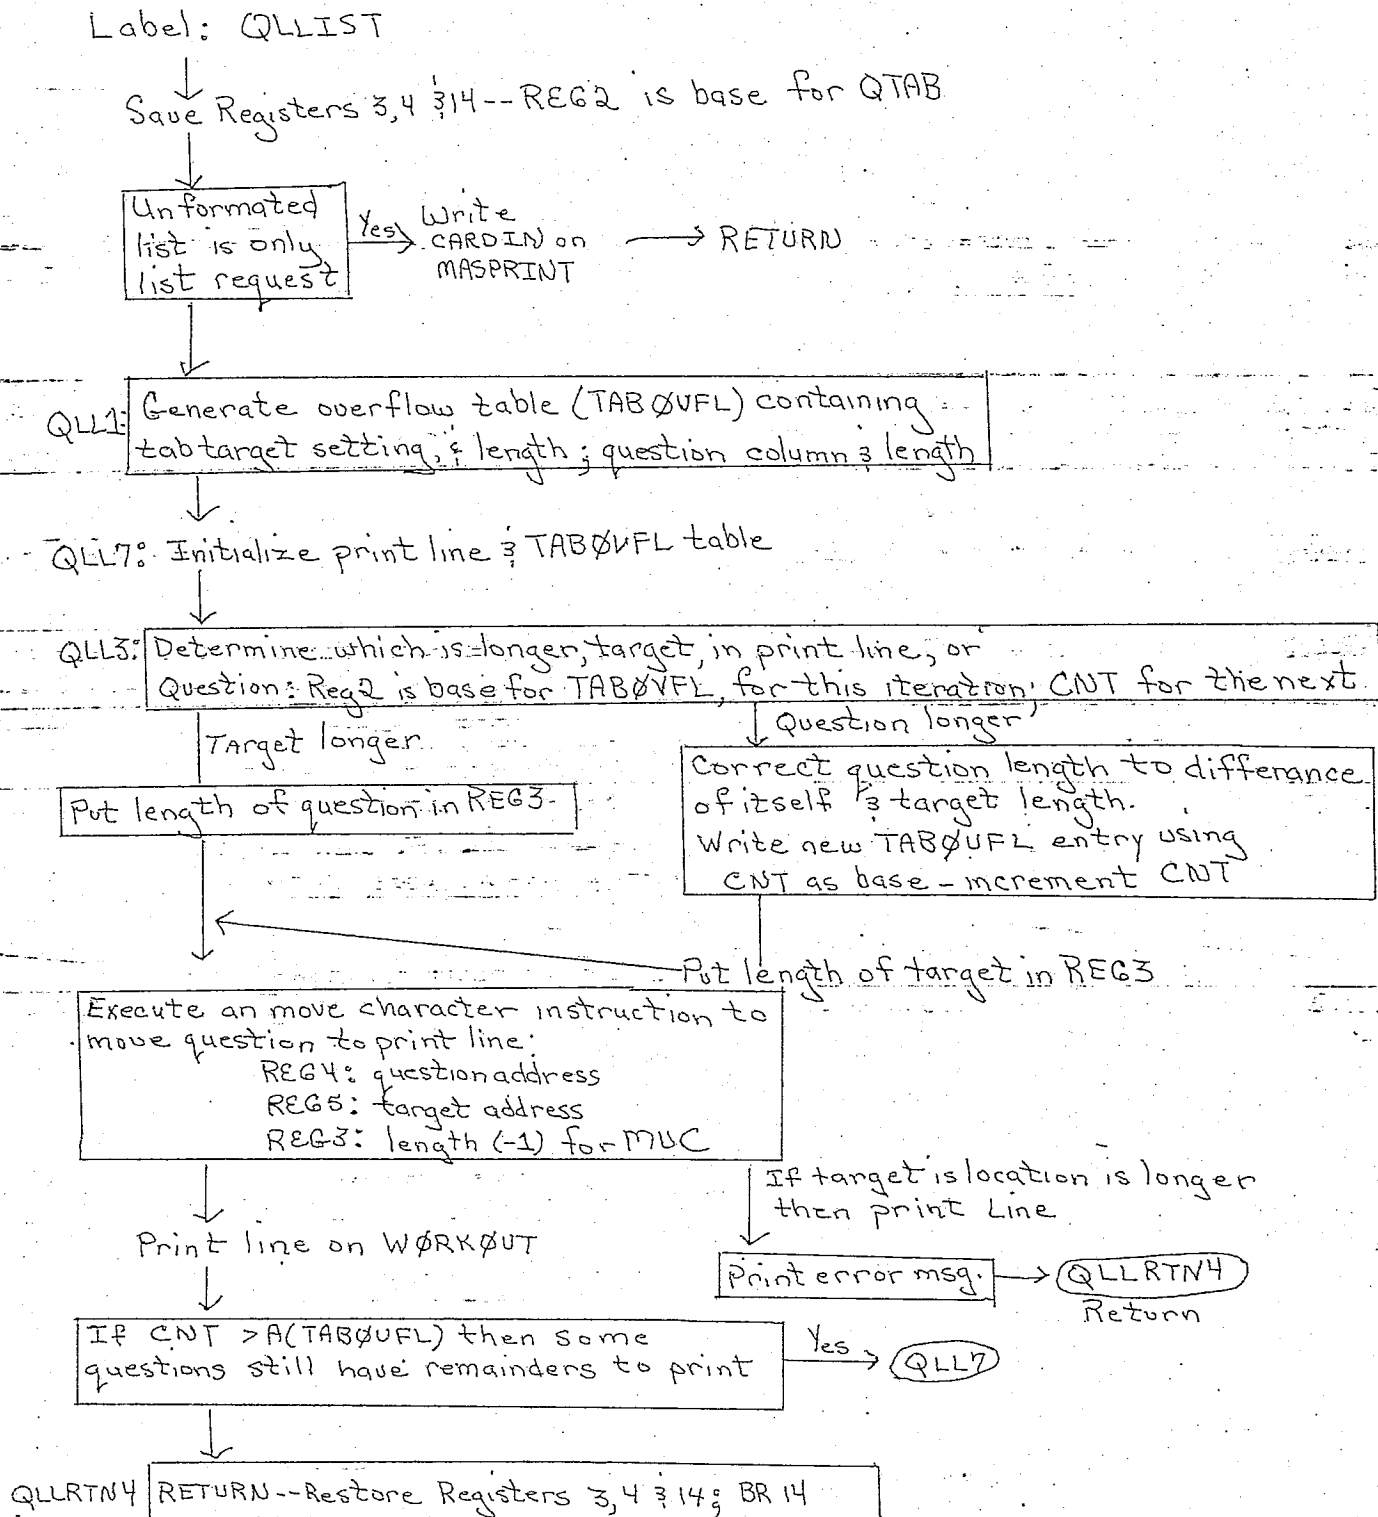 Label: QLLIST
Save Registers 3,4 & 14--REG2 is base for QTAB
Unformated
list is only
list request
Yes
Write
CARDIN on
MASPRINT
RETURN
QLL1:
Generate overflow table (TABØVFL) containing
tab target setting, & length; question column & length
QLL7: Initialize print line & TABØVFL table
QLL3:
Determine which is longer, target, in print line, or
Question: Reg2 is base for TABØVFL, for this iteration; CNT for the next
Target longer
Question longer
Put length of question in REG3.
Correct question length to differance
of itself & target length.
Write new TABØVFL entry using
CNT as base - increment CNT
Put length of target in REG3
Execute an move character instruction to
move question to print line:
REG4: question address
REG5: target address
REG3: length (-1) for MVC
If target is location is longer
then print Line
Print line on WØRKØUT
Print error msg.
QLLRTN4
Return
If CNT > A(TABØVFL) then some
questions still have remainders to print
Yes
QLL7
QLLRTN4
RETURN--Restore Registers 3,4 & 14; BR 14